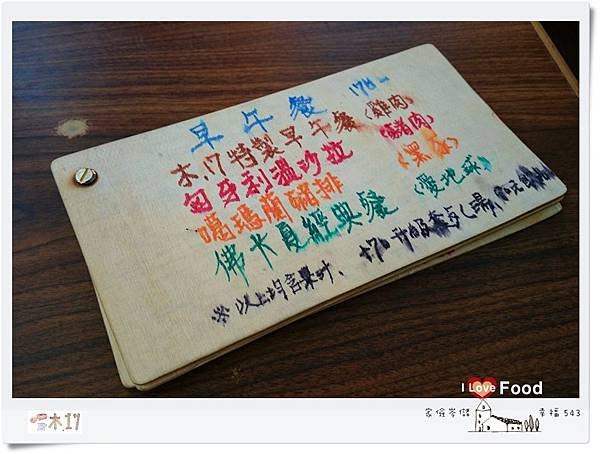 早午餐 178
木.17特製早午餐 (雞肉)
匈牙利溫沙拉 (豬肉)
噶瑪蘭豬排 (黑豚)
佛卡夏經典餐 (愛地球)
※以上均含果汁、+70
I Love Food
木.17
幸福543